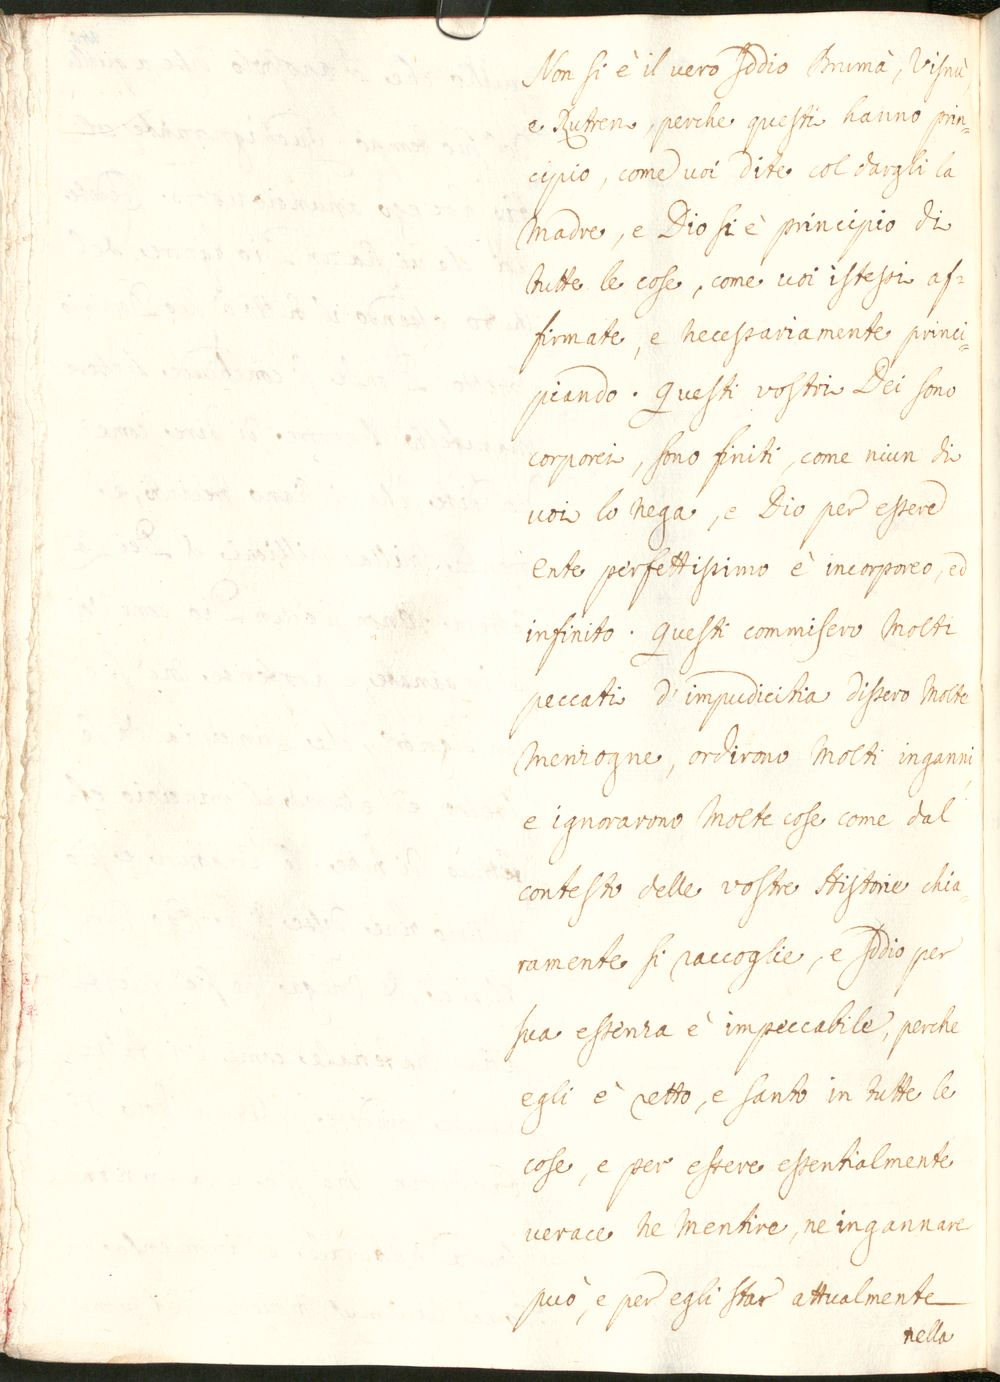 Non si è il vero Iddio Brumà, Visnù,
e Rutren, perche questi hanno prin=
cipio, come voi dite col dargli la
Madre, e Dio si è principio di
tutte le cose, come voi istessi af=
firmate, e necessariamente princi=
piando. Questi vostri Dei sono
corporei, sono finiti, come niun di
voi lo nega, e Dio per essere
Ente perfettissimo è incorporeo, ed
infinito. Questi commisero molti
peccati d'impudicitia dissero molte
menzogne, ordirono molti inganni,
e ignorarono molte cose come dal
contesto delle vostre Historie chia=
ramente si raccoglie, e Iddio per
sua essenza è impeccabile, perche
egli è retto, e santo in tutte le
cose, e per essere essentialmente
verace ne mentire, ne ingannare
può, e per egli star attualmente
nella